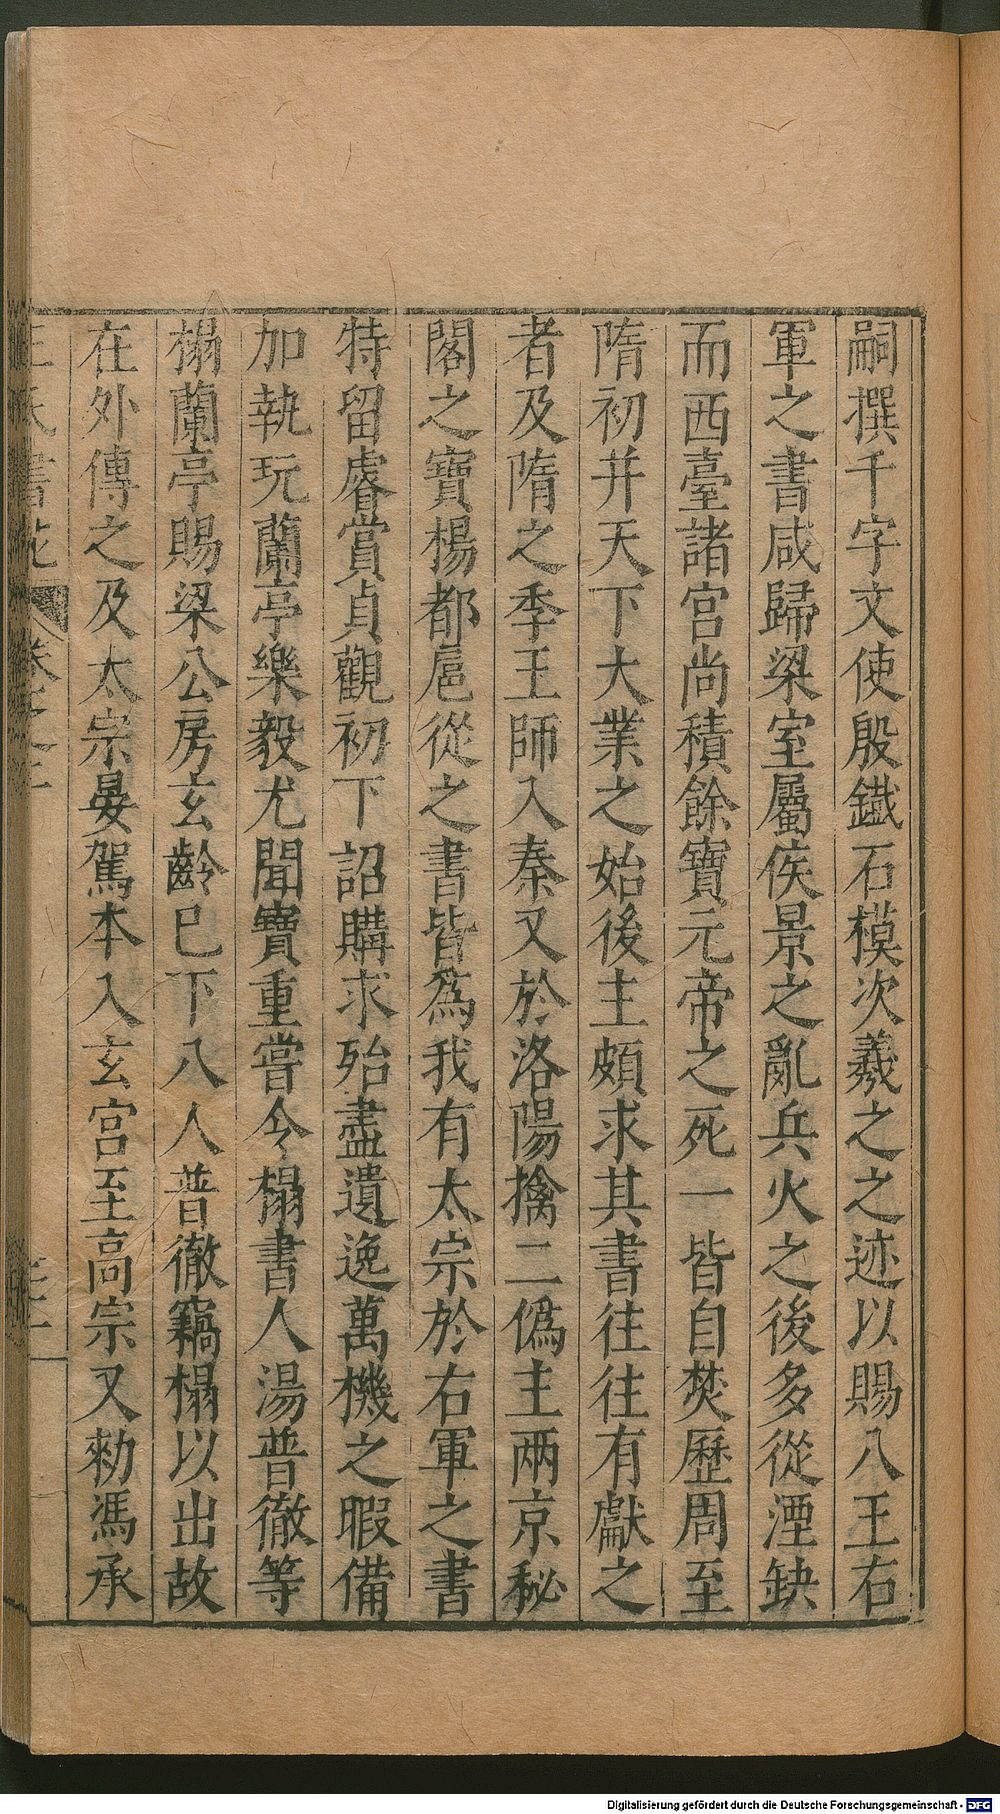 嗣撰千字文使殷鐵石模次羲之之迹以賜八王右
軍之書咸歸梁室屬侯景之亂兵火之後多從湮缺
而西臺諸宮尚積餘寶元帝之死一皆自焚歷周至
隋初并天下大業之始後主頗求其書往往有獻之
者及隋之季王師入秦又於洛陽擒二僞主兩京秘
閣之寶楊都扈從之書皆爲我有太宗於右軍之書
特留睿賞貞觀初下詔購求殆盡遺逸萬機之暇備
加執玩蘭亭樂毅尤聞寶重嘗令榻書人湯普徹等
榻蘭亭賜梁公房玄齡已下八人普徹竊榻以出故
在外傳之及太宗晏駕本入玄宮至高宗又勑馮承
王氏書苑 卷之二
Digitalisierung gefördert durch die Deutsche Forschungsgemeinschaft - DFG